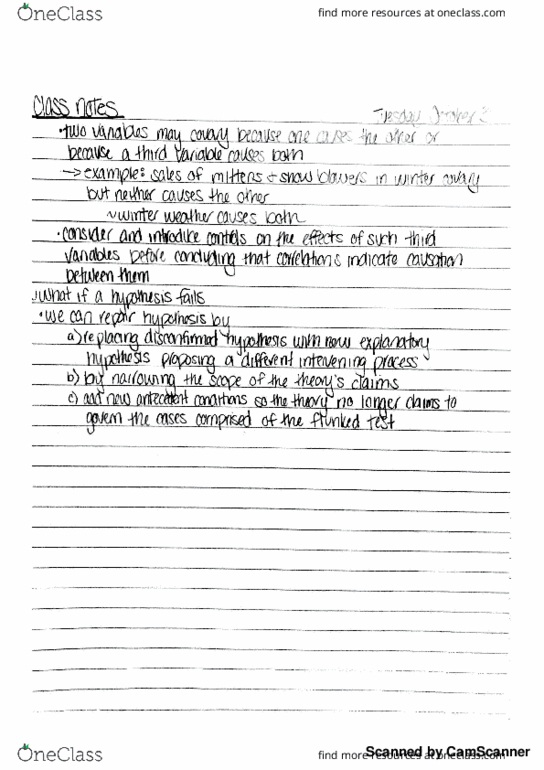 OneClass
find more resources at oneclass.com
Class notes
Tuesday October 3
•two variables may covary because one causes the other or
because a third variable causes both
→ example: sales of mittens + snow blowers in winter covary
but neither causes the other
~winter weather causes both
•consider and introduce controls on the effects of such third
variables before concluding that correlations indicate causation
between them
.what if a hypothesis fails
•we can repair hypothesis by
a) replacing disconfirmed hypothesis with new explanatory
hypothesis proposing a different intervening process
b) by narrowing the scope of the theory's claims
c) add new antecedent conditions so the theory no longer claims to
govern the cases comprised of the flunked test
OneClass
find more resources at oneclass.com
Scanned by CamScanner